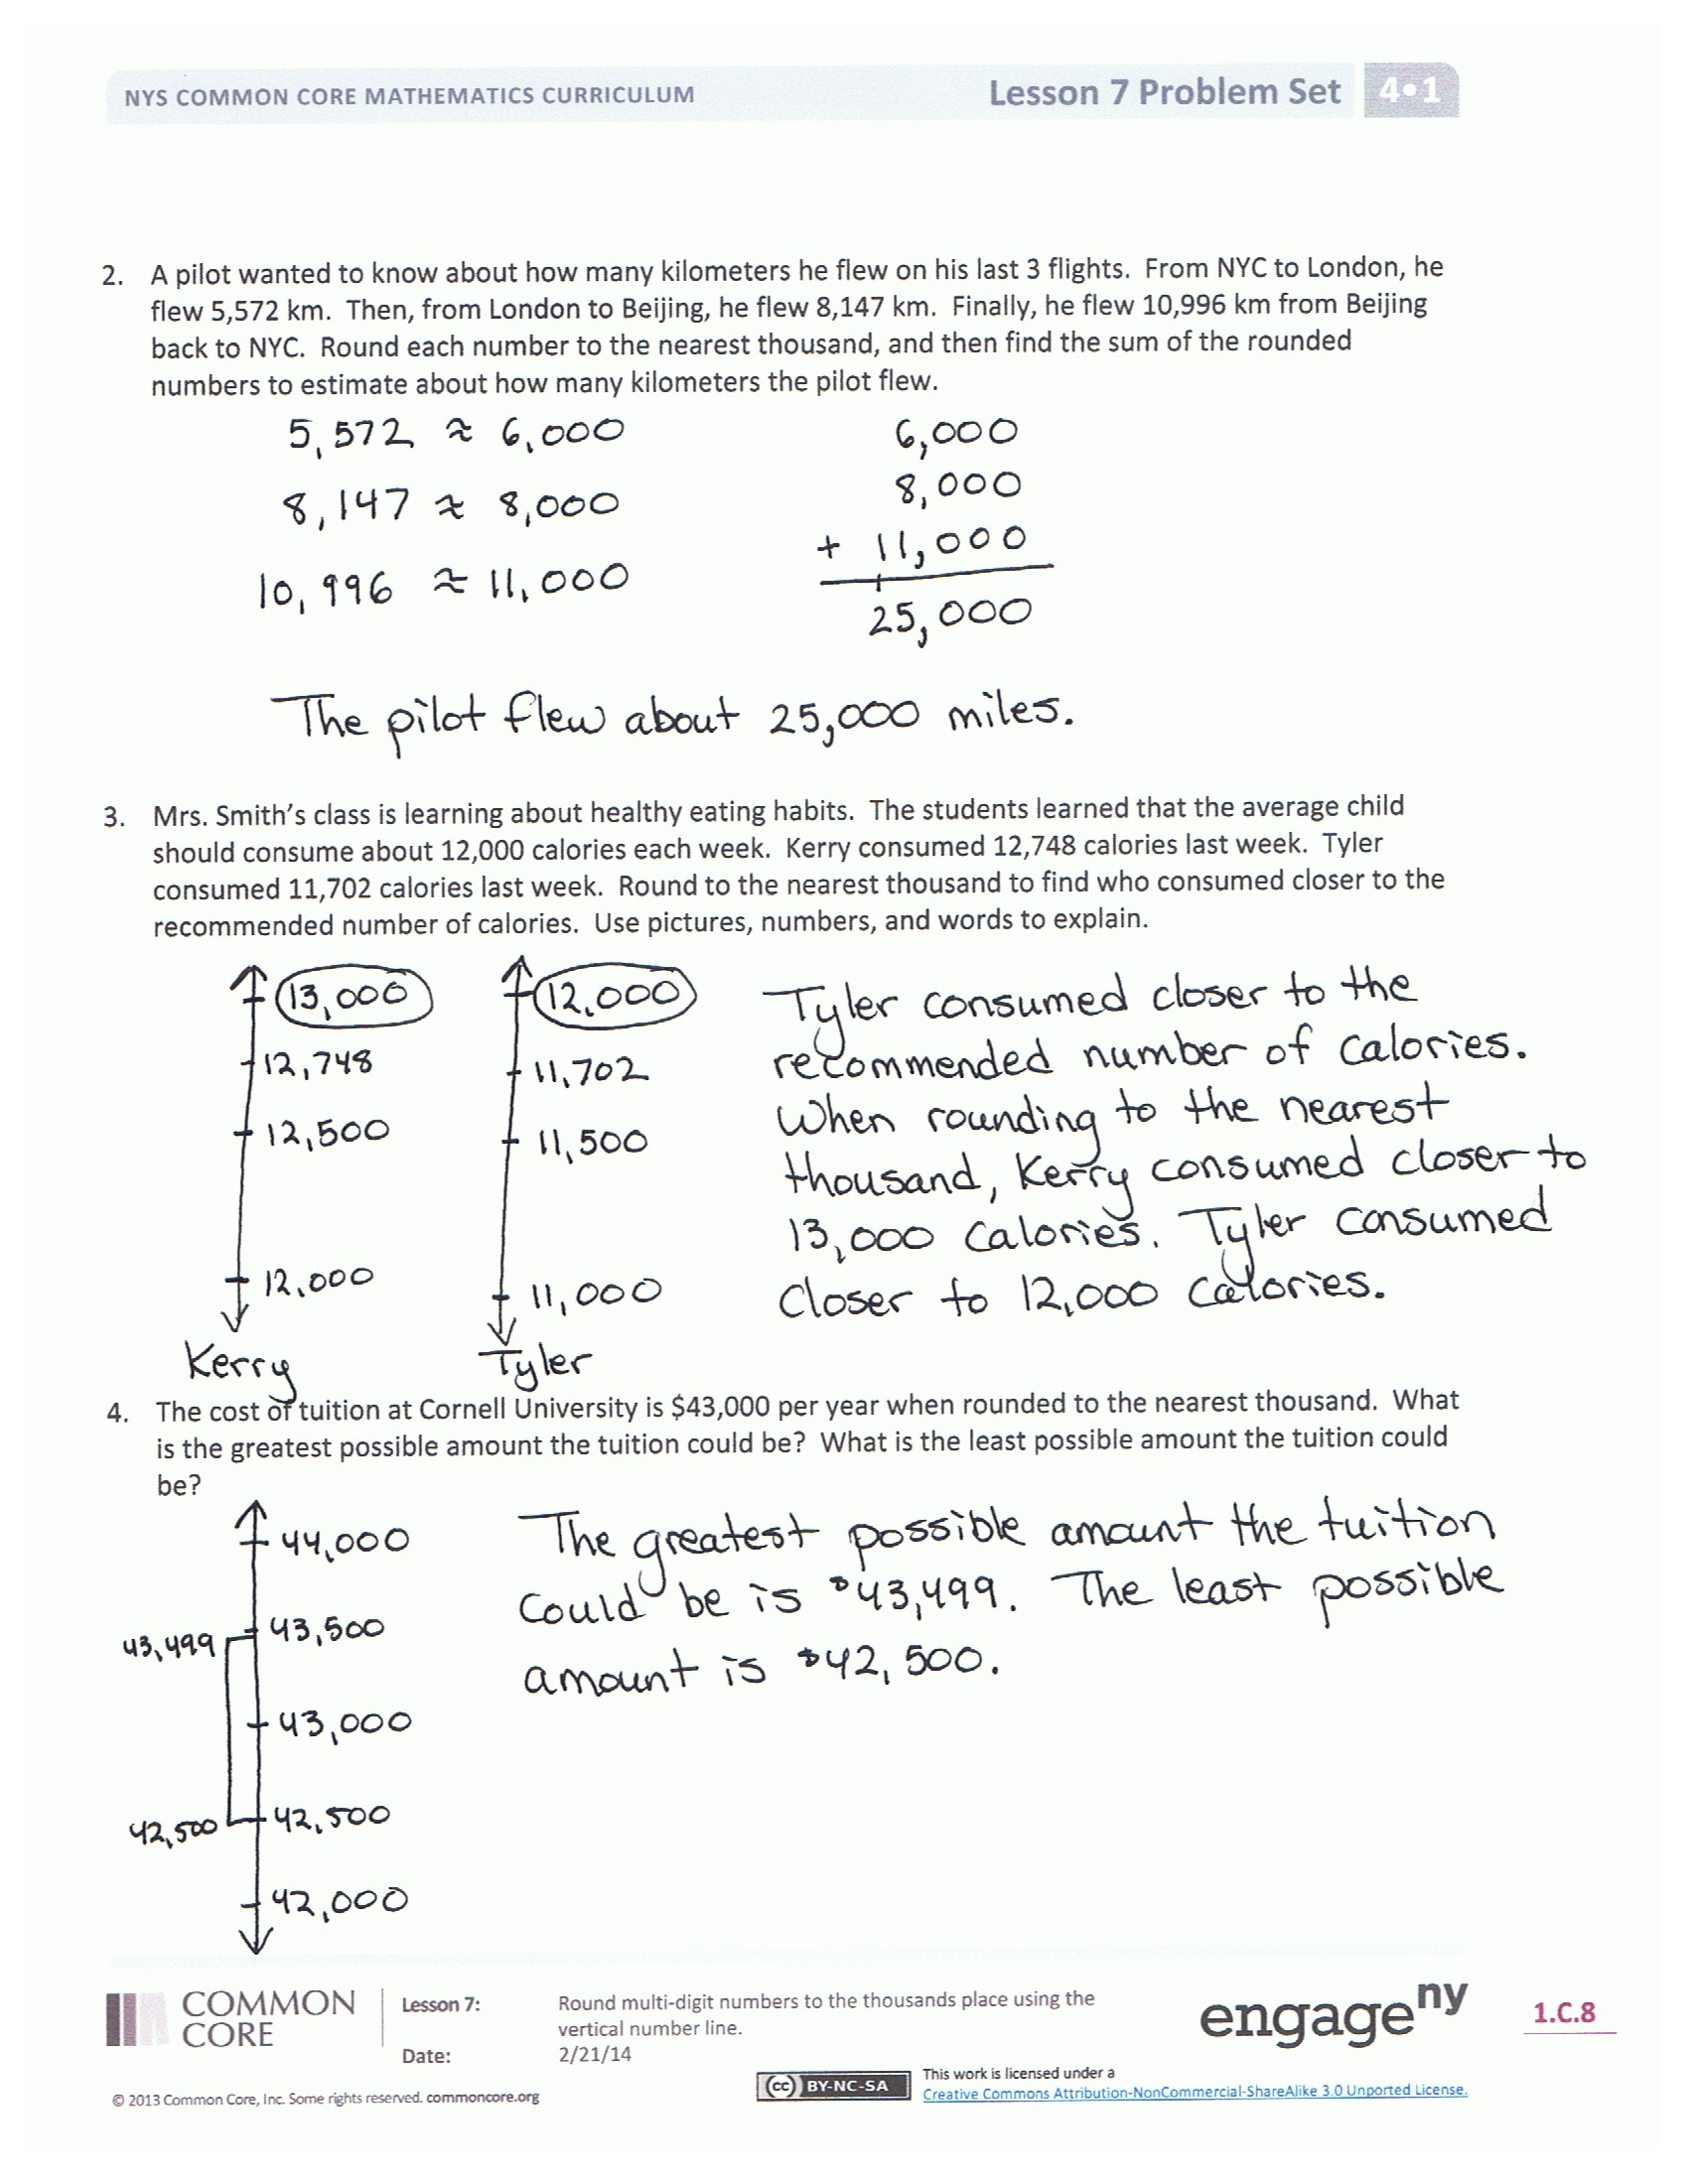 NYS COMMON CORE MATHEMATICS CURRICULUM Lesson 7 Problem Set 4•1
2. A pilot wanted to know about how many kilometers he flew on his last 3 flights. From NYC to London, he
flew 5,572 km. Then, from London to Beijing, he flew 8,147 km. Finally, he flew 10,996 km from Beijing
back to NYC. Round each number to the nearest thousand, and then find the sum of the rounded
numbers to estimate about how many kilometers the pilot flew.
5,572 ≈ 6,000
8,147 ≈ 8,000
10,996 ≈ 11,000
6,000
8,000
+ 11,000
1
25,000
The pilot flew about 25,000 miles.
3. Mrs. Smith's class is learning about healthy eating habits. The students learned that the average child
should consume about 12,000 calories each week. Kerry consumed 12,748 calories last week. Tyler
consumed 11,702 calories last week. Round to the nearest thousand to find who consumed closer to the
recommended number of calories. Use pictures, numbers, and words to explain.
13,000
12,748
12,500
12,000
Kerry
12,000
11,702
11,500
11,000
Tyler
Tyler consumed closer to the
recommended number of calories.
When rounding to the nearest
thousand, Kerry consumed closer to
13,000 calories. Tyler consumed
closer to 12,000 calories.
4. The cost of tuition at Cornell University is $43,000 per year when rounded to the nearest thousand. What
is the greatest possible amount the tuition could be? What is the least possible amount the tuition could
be?
44,000
43,500
43,499
43,000
42,500
42,500
42,000
The greatest possible amount the tuition
could be is $43,499. The least possible
amount is $42,500.
COMMON
CORE
Lesson 7: Round multi-digit numbers to the thousands place using the
vertical number line.
Date: 2/21/14
engage ny
1.C.8
© 2013 Common Core, Inc. Some rights reserved. commoncore.org
cc BY-NC-SA
This work is licensed under a
Creative Commons Attribution-NonCommercial-ShareAlike 3.0 Unported License.